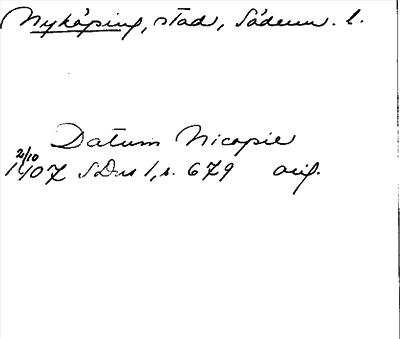 Nyköping, stad, Söderm. l.
Datum Nicopie
21/10
1407 SDns 1, s. 679 orig.